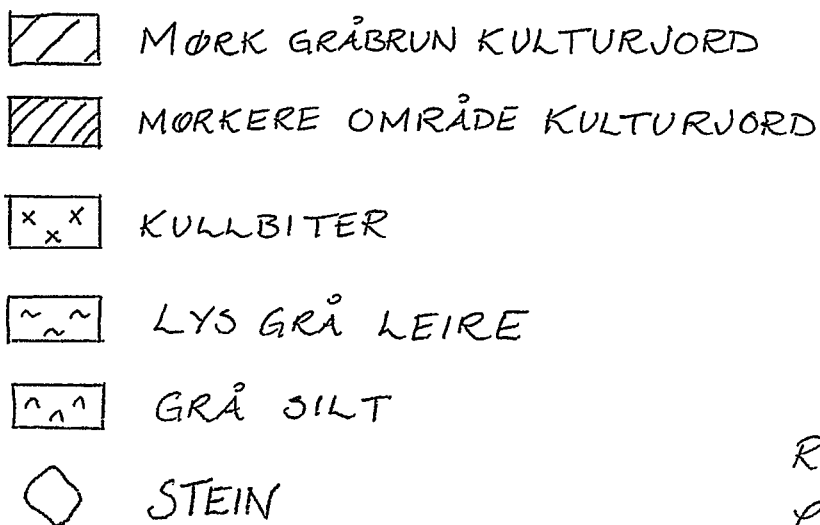 MØRK GRÅBRUN KULTURJORD
MØRKERE OMRÅDE KULTURJORD
KULLBITER
LYS GRÅ LEIRE
GRÅ SILT
STEIN